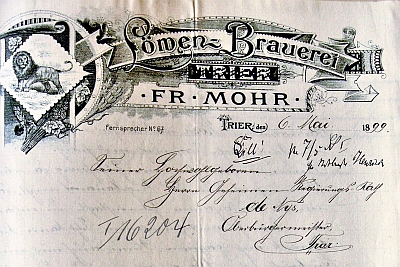 Löwen-Brauerei
TRIER
FR. MOHR.
Fernsprecher No. 67
TRIER, den 6. Mai 1899.
Seiner Hochwohlgeboren
Herrn Geheimen Regierungs Rath
de Nys.
Oberbürgermeister,
Trier
I/16204